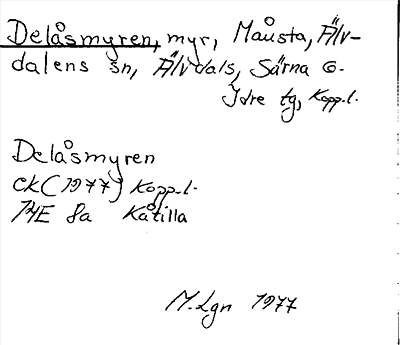 Delåsmyren, myr, Måsta, Älv-
dalens sn, Älvdals, Särna o.
Idre tg, Kopp.l.
Delåsmyren
EK (1977) Kopp.l.
14E 8a Kåtilla
M. Lgn 1977